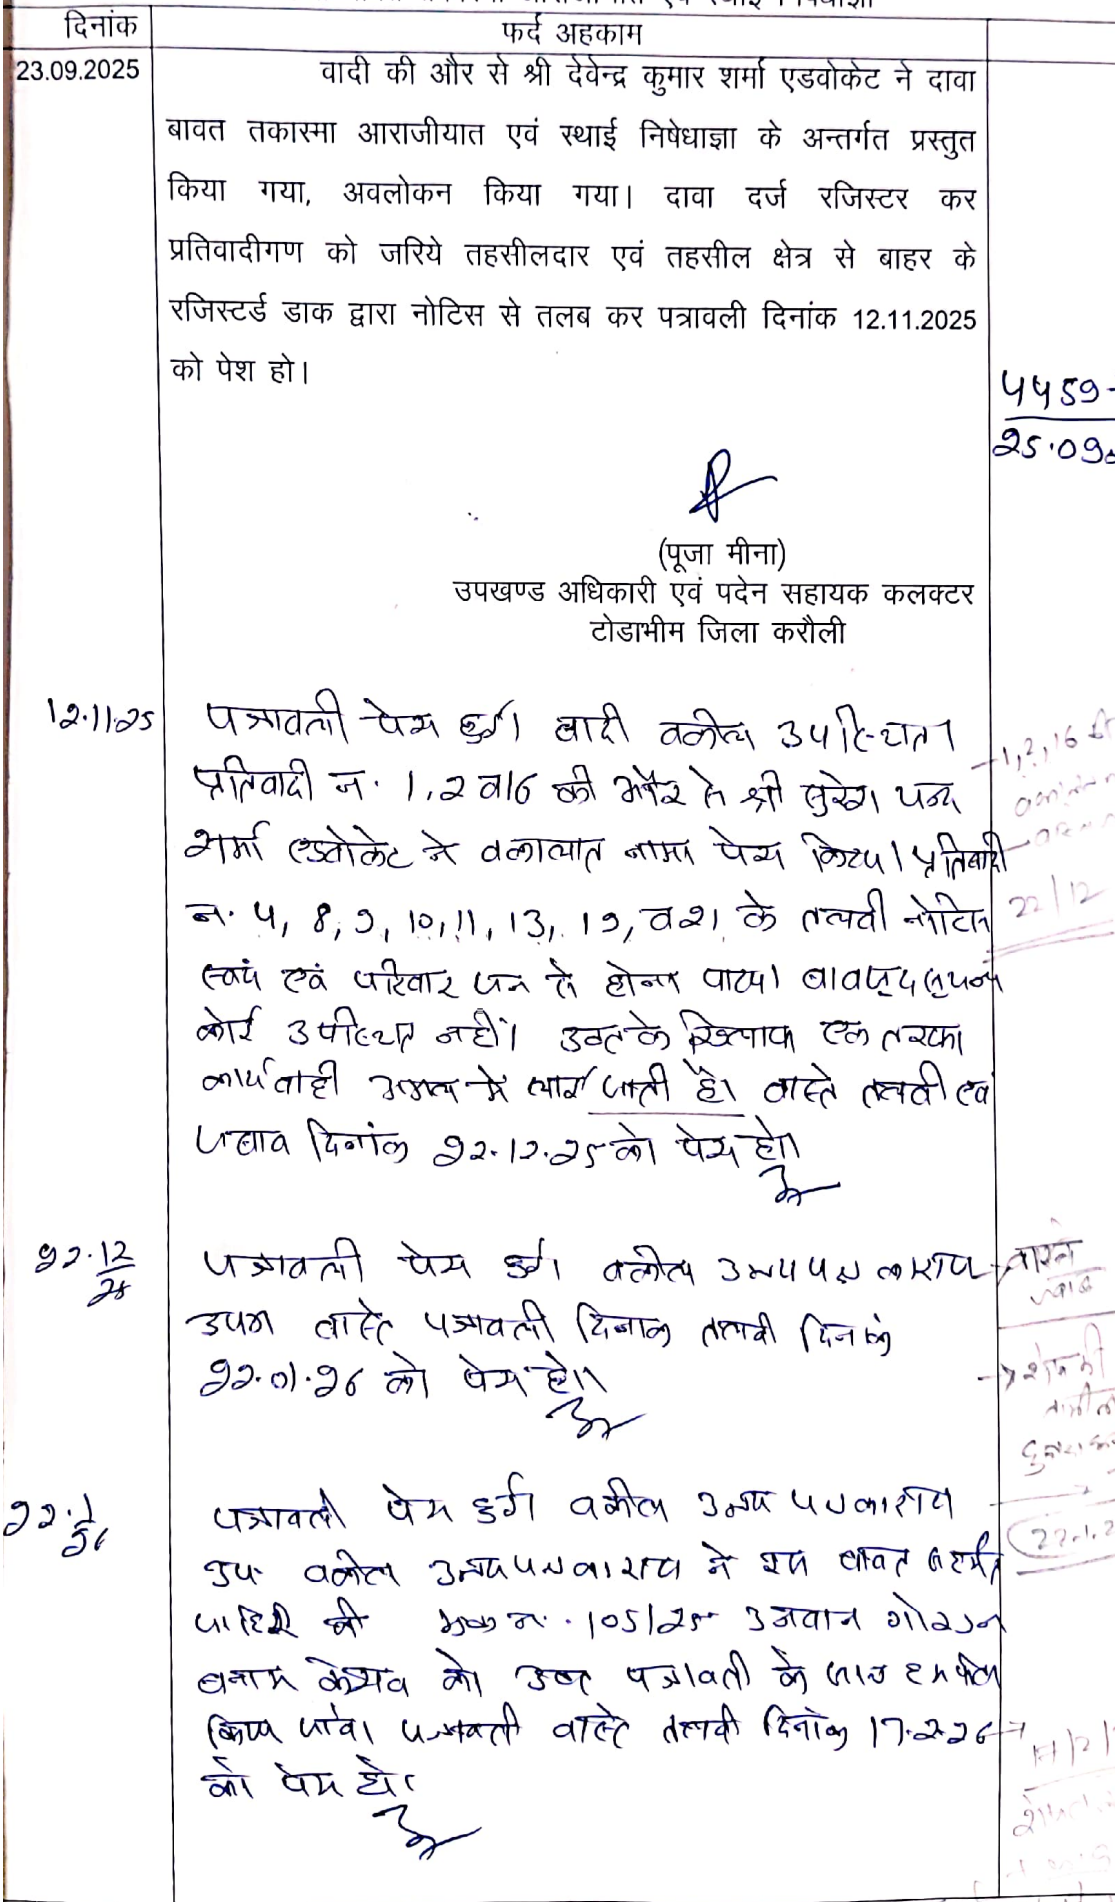 दिनांक
फर्द अहकाम
23.09.2025
वादी की और से श्री देवेन्द्र कुमार शर्मा एडवोकेट ने दावा
बावत तकास्मा आराजीयात एवं स्थाई निषेधाज्ञा के अन्तर्गत प्रस्तुत
किया गया, अवलोकन किया गया। दावा दर्ज रजिस्टर कर
प्रतिवादीगण को जरिये तहसीलदार एवं तहसील क्षेत्र से बाहर के
रजिस्टर्ड डाक द्वारा नोटिस से तलब कर पत्रावली दिनांक 12.11.2025
को पेश हो।
25.09
(पूजा मीना)
उपखण्ड अधिकारी एवं पदेन सहायक कलक्टर
टोडाभीम जिला करौली
12.11.25
पत्रावली पेश हुई। वादी वकील उपस्थित।
प्रतिवादी न. 1,2 व 16 की ओर से श्री सुरेश चन्द
शर्मा एडवोकेट ने वकालात नामा पेश किया। प्रतिवादी
न. 4, 8, 9, 10, 11, 13, 19, व 21 के तलवी नोटिस
स्वयं एवं परिवार जन से होना पाया। बावजूद सूचना
कोई उपस्थित नहीं। उक्त के खिलाफ एक तरफा
कार्यवाही अमल में लाई जाती है। वास्ते तलवी एवं
जबाव दिनांक 22.12.25 को पेश हो।
1,2,16
22/12
22.12
25
पत्रावली पेश हुई। वकील उभयपक्षकारान
उप० वास्ते पत्रावली दिनांक तलवी दिनांक
22.01.26 को पेश हो।
वास्ते
22.1
26
पत्रावली पेश हुई। वकील उभय पक्षकारान
उप. वकील उभयपक्षकारान ने इस बावत सहमति
जाहिर की न. 105/25 उनवान
बनाम केशव को उक्त पत्रावली के साथ
किया जावे। पत्रावली वास्ते तलवी दिनांक 17.2.26
को पेश हो।
22.1.2